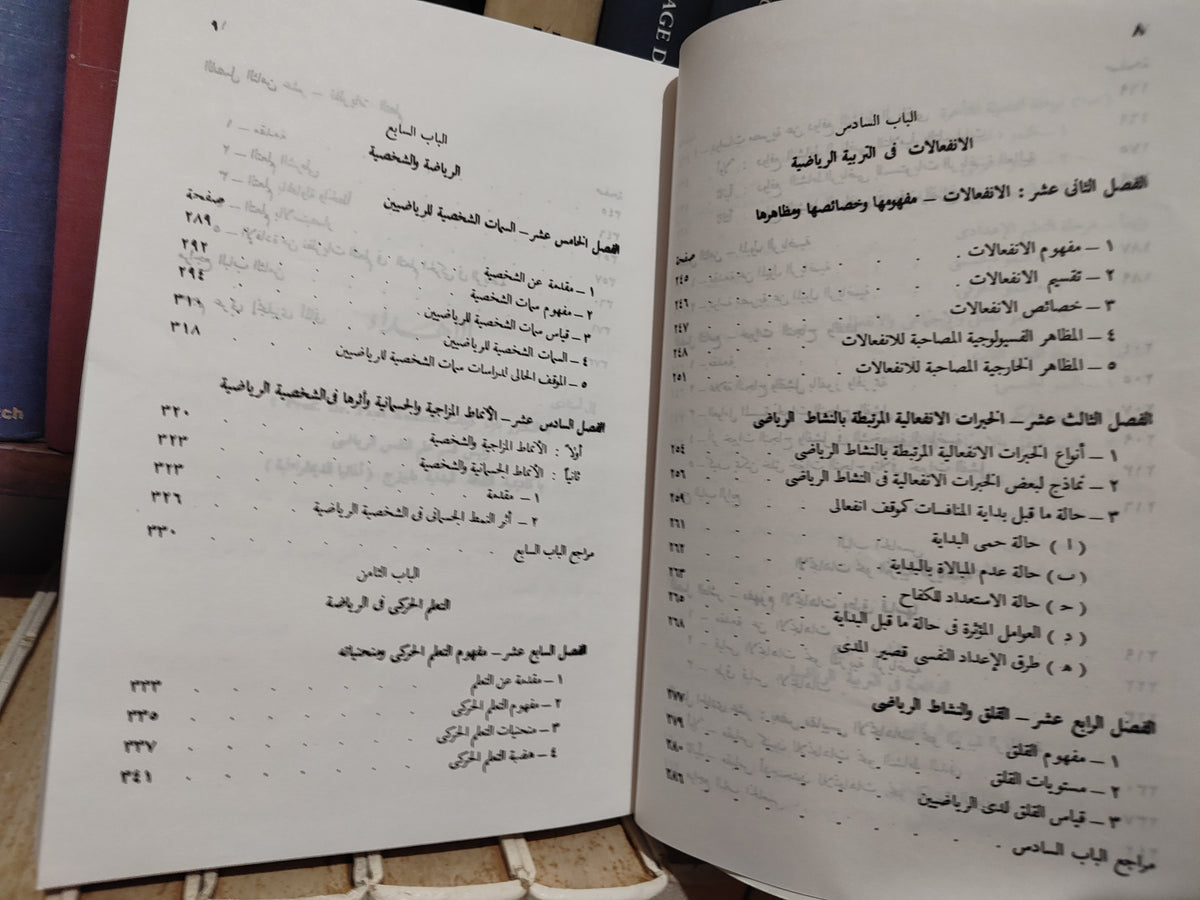 ٨
الباب السادس
الانفعالات فى التربية الرياضية
الفصل الثانى عشر : الانفعالات – مفهومها وخصائصها ومظاهرها
صفحة
١ – مفهوم الانفعالات . . . . ٢٤٥
٢ – تقسيم الانفعالات . . . . ٢٤٦
٣ – خصائص الانفعالات . . . . ٢٤٧
٤ – المظاهر الفسيولوجية المصاحبة للانفعالات . . ٢٤٨
٥ – المظاهر الخارجية المصاحبة للانفعالات . . ٢٥١
الفصل الثالث عشر – الخبرات الانفعالية المرتبطة بالنشاط الرياضى
١ – أنواع الخبرات الانفعالية المرتبطة بالنشاط الرياضى . ٢٥٤
٢ – نماذج لبعض الخبرات الانفعالية فى النشاط الرياضى . ٢٥٦
٣ – حالة ما قبل بداية المنافسات كموقف انفعالى . ٢٥٩
( ا ) حالة حمى البداية . . . . ٢٦١
( ب ) حالة عدم المبالاة بالبداية . . . ٢٦٢
( ح ) حالة الاستعداد للكفاح . . . ٢٦٣
( د ) العوامل المؤثرة فى حالة ما قبل البداية . . ٢٦٥
( ه ) طرق الإعداد النفسى قصير المدى . . ٢٦٨
الفصل الرابع عشر – القلق والنشاط الرياضى
١ – مفهوم القلق . . . . . ٢٧٧
٢ – مستويات القلق . . . . . ٢٧٩
٣ – قياس القلق لدى الرياضيين . . . ٢٨٠
مراجع الباب السادس . . . . . ٢٨٦
٩
الباب السابع
الرياضة والشخصية
الفصل الخامس عشر – السمات الشخصية للرياضيين
صفحة
١ – مقدمة عن الشخصية . . . . ٢٨٩
٢ – مفهوم سمات الشخصية . . . . ٢٩٢
٣ – قياس سمات الشخصية للرياضيين . . . ٢٩٤
٤ – السمات الشخصية للرياضيين . . .
٥ – الموقف الحالى لدراسات سمات الشخصية للرياضيين . . ٣١٨
الفصل السادس عشر – الأنماط المزاجية والجسمانية وأثرها فى الشخصية الرياضية
أولاً : الأنماط المزاجية والشخصية . . . ٣٢٠
ثانياً : الأنماط الجسمانية والشخصية . . . ٣٢٣
١ – مقدمة . . . . . ٣٢٣
٢ – أثر النمط الجسمانى فى الشخصية الرياضية . . ٣٢٦
مراجع الباب السابع . . . . . . ٣٣٠
الباب الثامن
التعلم الحركى فى الرياضة
الفصل السابع عشر – مفهوم التعلم الحركى ومنحنياته
١ – مقدمة عن التعلم . . . . . ٣٣٣
٢ – مفهوم التعلم الحركى . . . . . ٣٣٥
٣ – منحنيات التعلم الحركى . . . . ٣٣٧
٤ – هضبة التعلم الحركى . . . . ٣٤١
AGE D